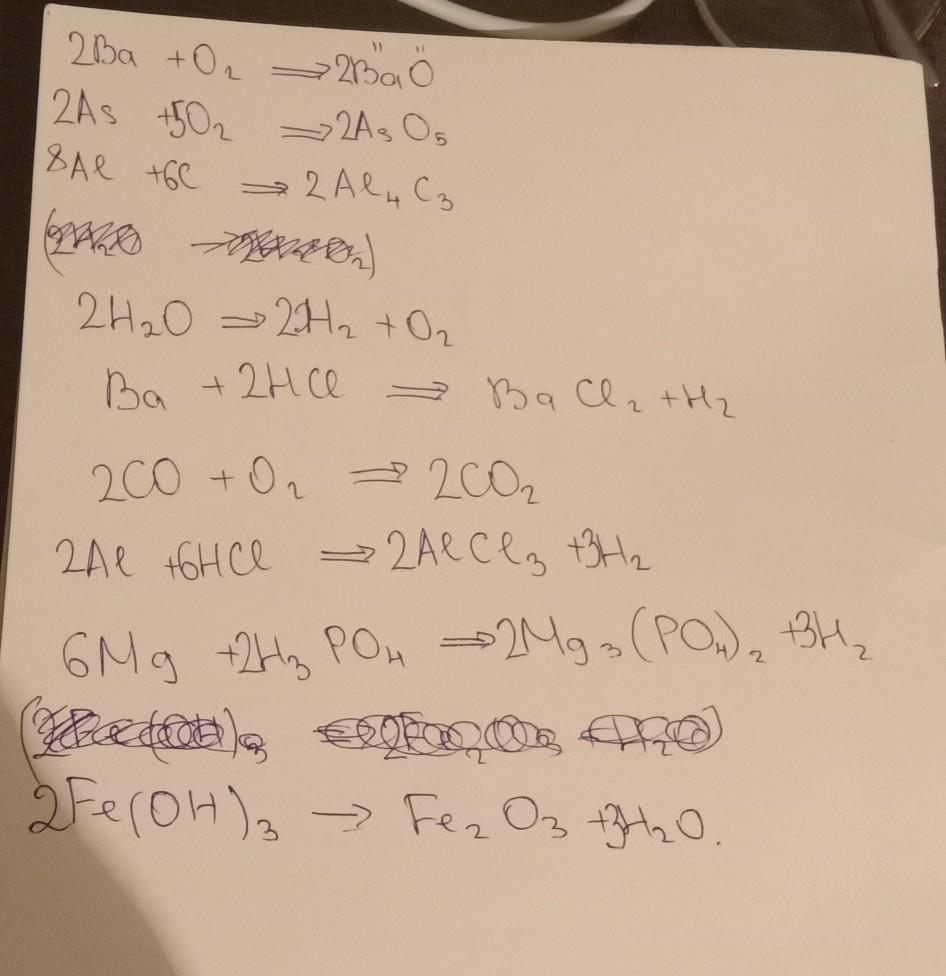 2Ba + O₂ ⇒ 2BaO
2As + 5O₂ ⇒ 2As O₅
8Al + 6C ⇒ 2Al₄ C₃
2H₂O ⇒ 2H₂ + O₂
Ba + 2HCl ⇒ Ba Cl₂ + H₂
2CO + O₂ ⇒ 2CO₂
2Al + 6HCl ⇒ 2AlCl₃ + 3H₂
6Mg + 2H₃ PO₄ ⇒ 2Mg₃(PO₄)₂ + 3H₂
2Fe(OH)₃ → Fe₂ O₃ + 3H₂O.